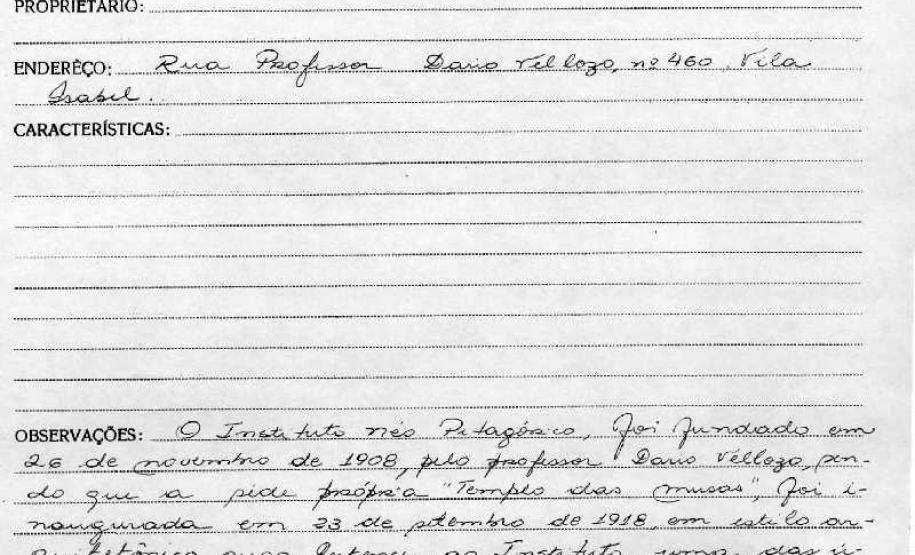 PROPRIETÁRIO:
ENDERÊÇO: Rua Professor Dario Vellozo, nº 460, Vila
Isabel.
CARACTERÍSTICAS:
OBSERVAÇÕES: O Instituto néo Pitagórico, foi fundado em
26 de novembro de 1908, pelo professor Dario Vellozo, sen-
do que a séde própria "Templo das musas", foi i-
naugurada em 23 de setembro de 1918, em estilo ar-
quitetônico